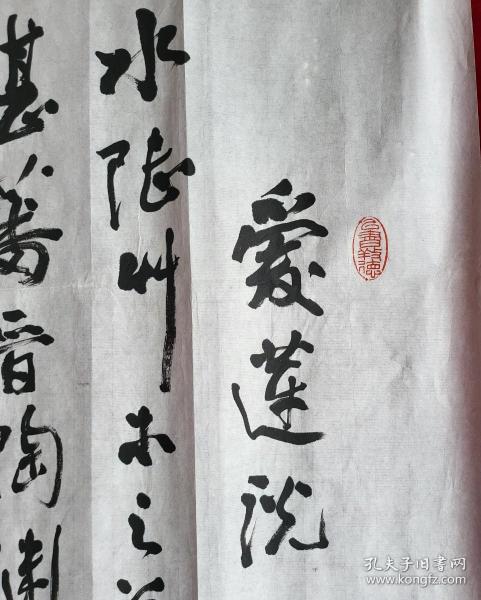 愛蓮説
水陸艸木之
甚蕃晋陶淵
孔夫子旧书网
www.kongfz.com